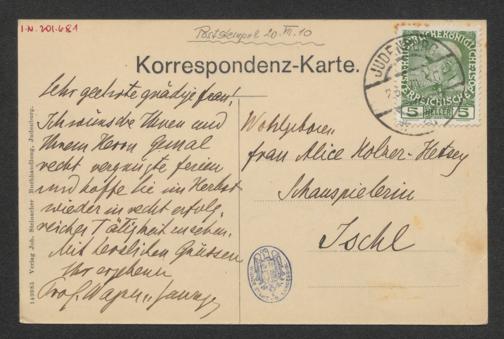 I.N. 201.681
Poststempel 20. VII. 10
Korrespondenz-Karte.
JUDENBURG
5 HELLER 5
Sehr geehrte gnädige Frau!
Ich wünsche Ihnen und
Ihrem Herrn Gemal
recht vergnügte Ferien
und hoffe Sie im Herbst
wieder in recht erfolg,
reicher Tätigkeit zu sehen.
Mit herzlichen Grüssen
Ihr ergebener
Prof. Wagner
Wohlgeboren
Frau Alice Holzer-Hetsey
Schauspielerin
Ischl
149985 Verlag Joh. Steinacher Buchhandlung, Judenburg.